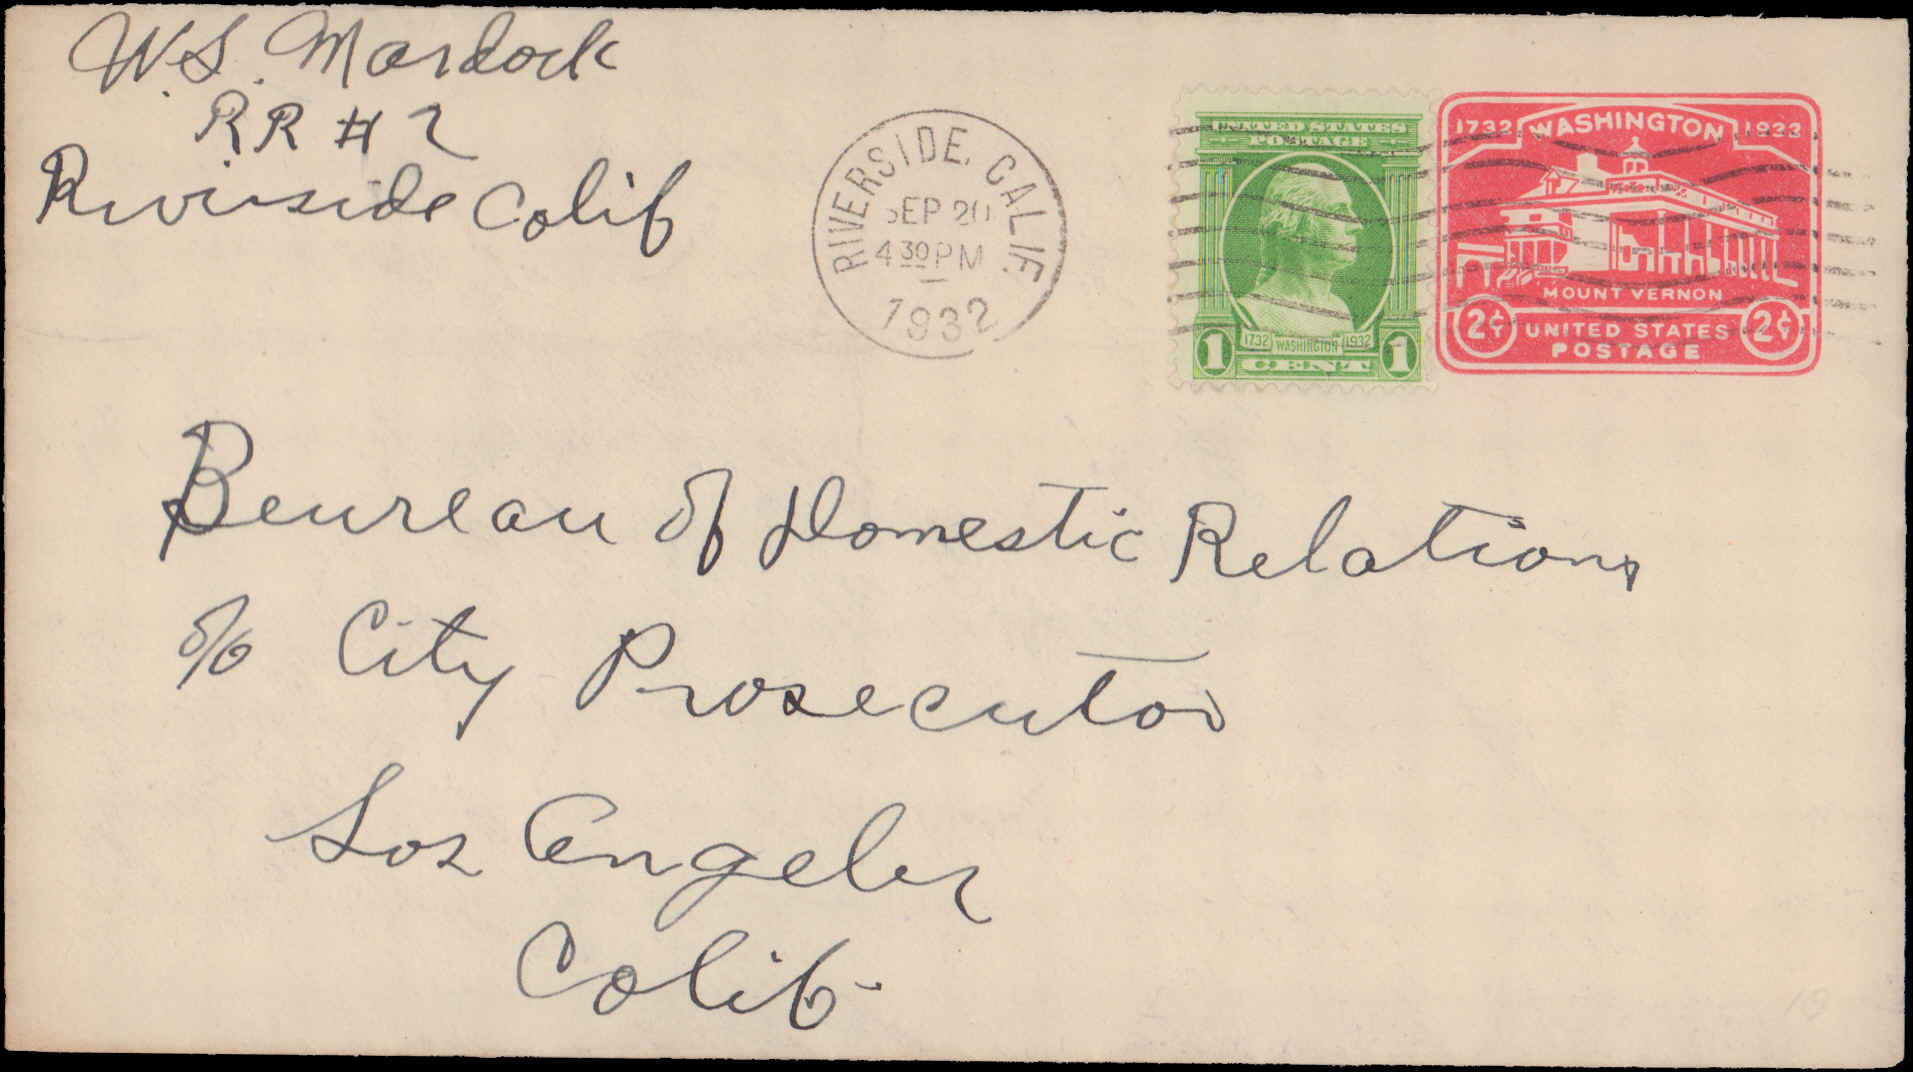 W.S. Mardock
RR #2
Riverside Calif
RIVERSIDE, CALIF.
SEP 20
4 30 PM
1932
UNITED STATES
POSTAGE
1732 WASHINGTON 1932
1 CENT 1
1732 WASHINGTON 1932
MOUNT VERNON
2¢ UNITED STATES 2¢
POSTAGE
Beureau of Domestic Relations
c/o City Prosecutor
Los Angeles
Calif.